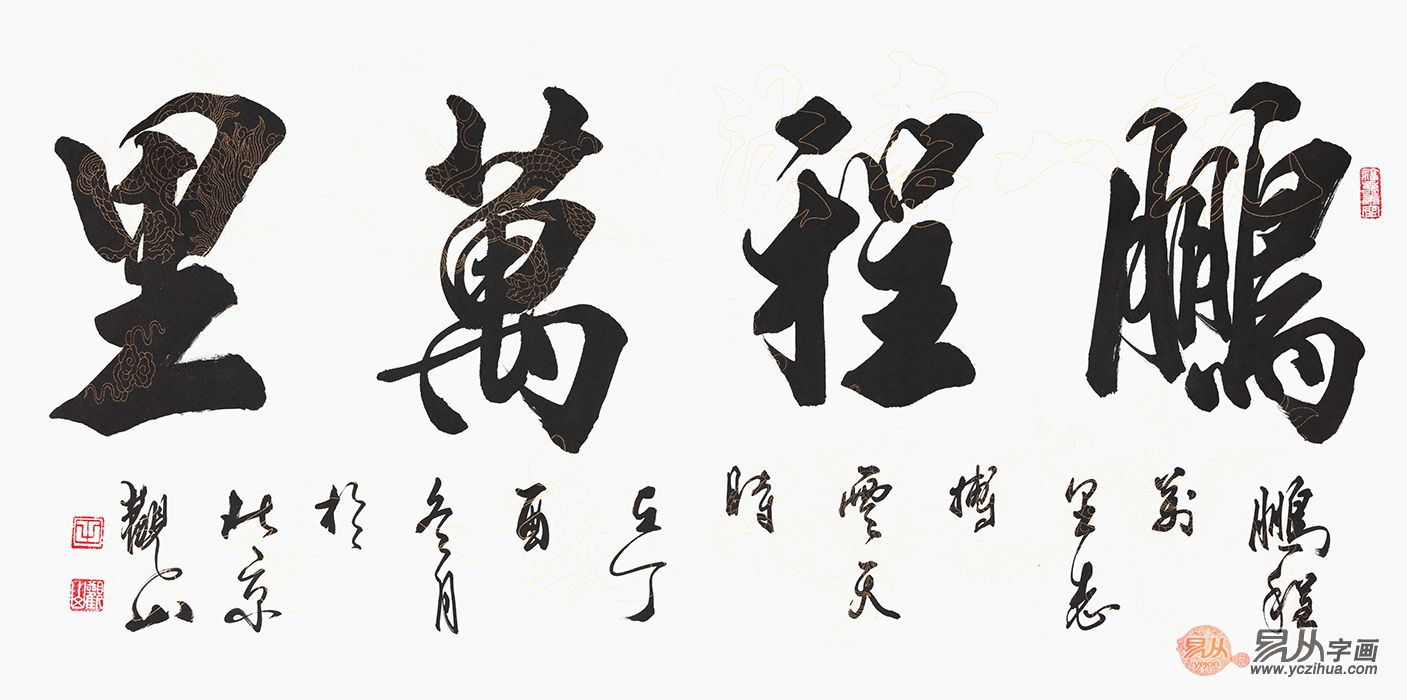 鵬程萬里
鵬程
萬
里志
搏
雲天
時
在丁
酉
冬月
於
北京
觀山
易从
易从字画
www.yczihua.com